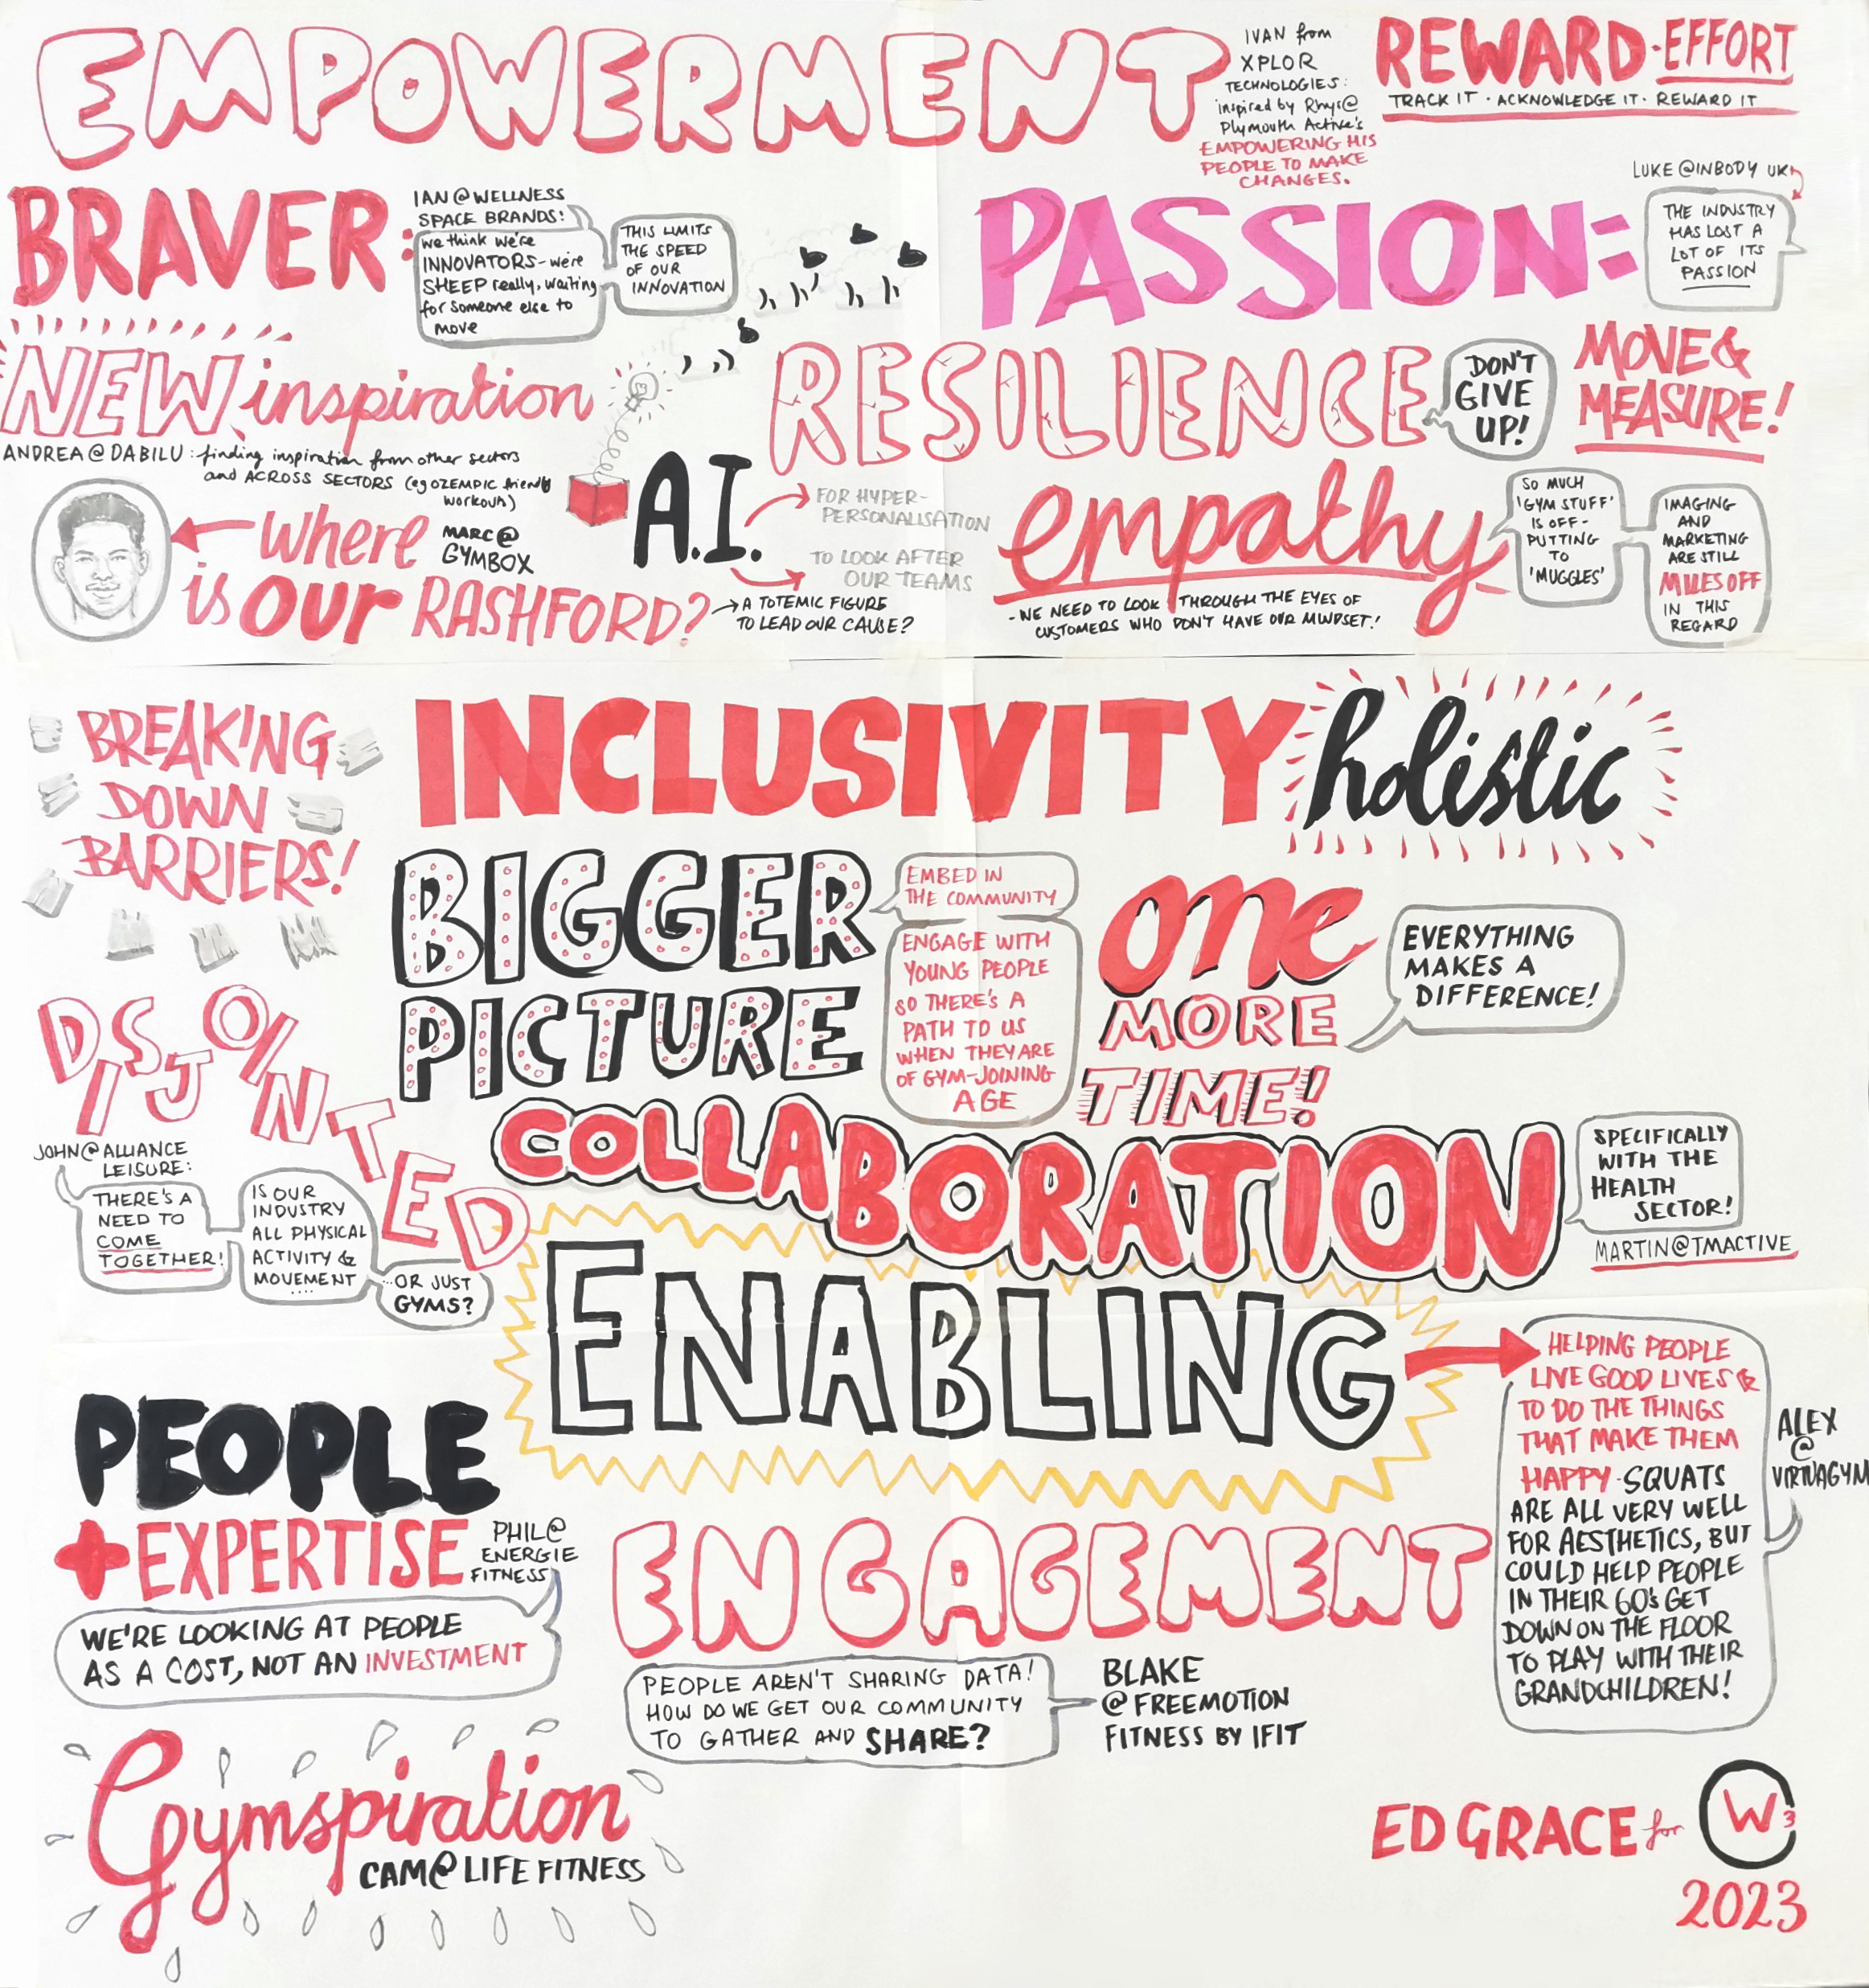 EMPOWERMENT
IVAN from
XPLOR
TECHNOLOGIES:
inspired by Rhys@
Plymouth Active's
EMPOWERING HIS
PEOPLE TO MAKE
CHANGES.
REWARD·EFFORT
TRACK IT · ACKNOWLEDGE IT · REWARD IT
BRAVER:
IAN@WELLNESS
SPACE BRANDS:
We think we're
INNOVATORS - we're
SHEEP really, waiting
for someone else to
move
THIS LIMITS
THE SPEED
OF OUR
INNOVATION
PASSION:
LUKE@INBODY UK
THE INDUSTRY
HAS LOST A
LOT OF ITS
PASSION
NEW inspiration
ANDREA@DABILU: finding inspiration from other sectors
and ACROSS SECTORS (eg OZEMPIC friendly
workouts)
RESILIENCE
DON'T
GIVE
UP!
MOVE &
MEASURE!
where
is our RASHFORD?
MARC@
GYMBOX
→ A TOTEMIC FIGURE
TO LEAD OUR CAUSE?
A.I.
FOR HYPER-
PERSONALISATION
TO LOOK AFTER
OUR TEAMS
empathy
- WE NEED TO LOOK THROUGH THE EYES OF
CUSTOMERS WHO DON'T HAVE OUR MINDSET!
SO MUCH
'GYM STUFF'
IS OFF-
PUTTING
TO
'MUGGLES'
IMAGING
AND
MARKETING
ARE STILL
MILES OFF
IN THIS
REGARD
BREAKING
DOWN
BARRIERS!
INCLUSIVITY
holistic
BIGGER
PICTURE
EMBED IN
THE COMMUNITY
ENGAGE WITH
YOUNG PEOPLE
SO THERE'S A
PATH TO US
WHEN THEY ARE
OF GYM-JOINING
AGE
one
MORE
TIME!
EVERYTHING
MAKES A
DIFFERENCE!
DISJOINTED
JOHN@ALLIANCE
LEISURE:
THERE'S A
NEED TO
COME
TOGETHER!
IS OUR
INDUSTRY
ALL PHYSICAL
ACTIVITY &
MOVEMENT
....
...OR JUST
GYMS?
COLLABORATION
SPECIFICALLY
WITH THE
HEALTH
SECTOR!
MARTIN@TMACTIVE
ENABLING
HELPING PEOPLE
LIVE GOOD LIVES &
TO DO THE THINGS
THAT MAKE THEM
HAPPY · SQUATS
ARE ALL VERY WELL
FOR AESTHETICS, BUT
COULD HELP PEOPLE
IN THEIR 60's GET
DOWN ON THE FLOOR
TO PLAY WITH THEIR
GRANDCHILDREN!
ALEX
@
VIRTUAGYM
PEOPLE
+EXPERTISE
PHIL@
ENERGIE
FITNESS
WE'RE LOOKING AT PEOPLE
AS A COST, NOT AN INVESTMENT
ENGAGEMENT
PEOPLE AREN'T SHARING DATA!
HOW DO WE GET OUR COMMUNITY
TO GATHER AND SHARE?
BLAKE
@FREEMOTION
FITNESS BY IFIT
Gymspiration
CAM@LIFE FITNESS
ED GRACE for W3
2023